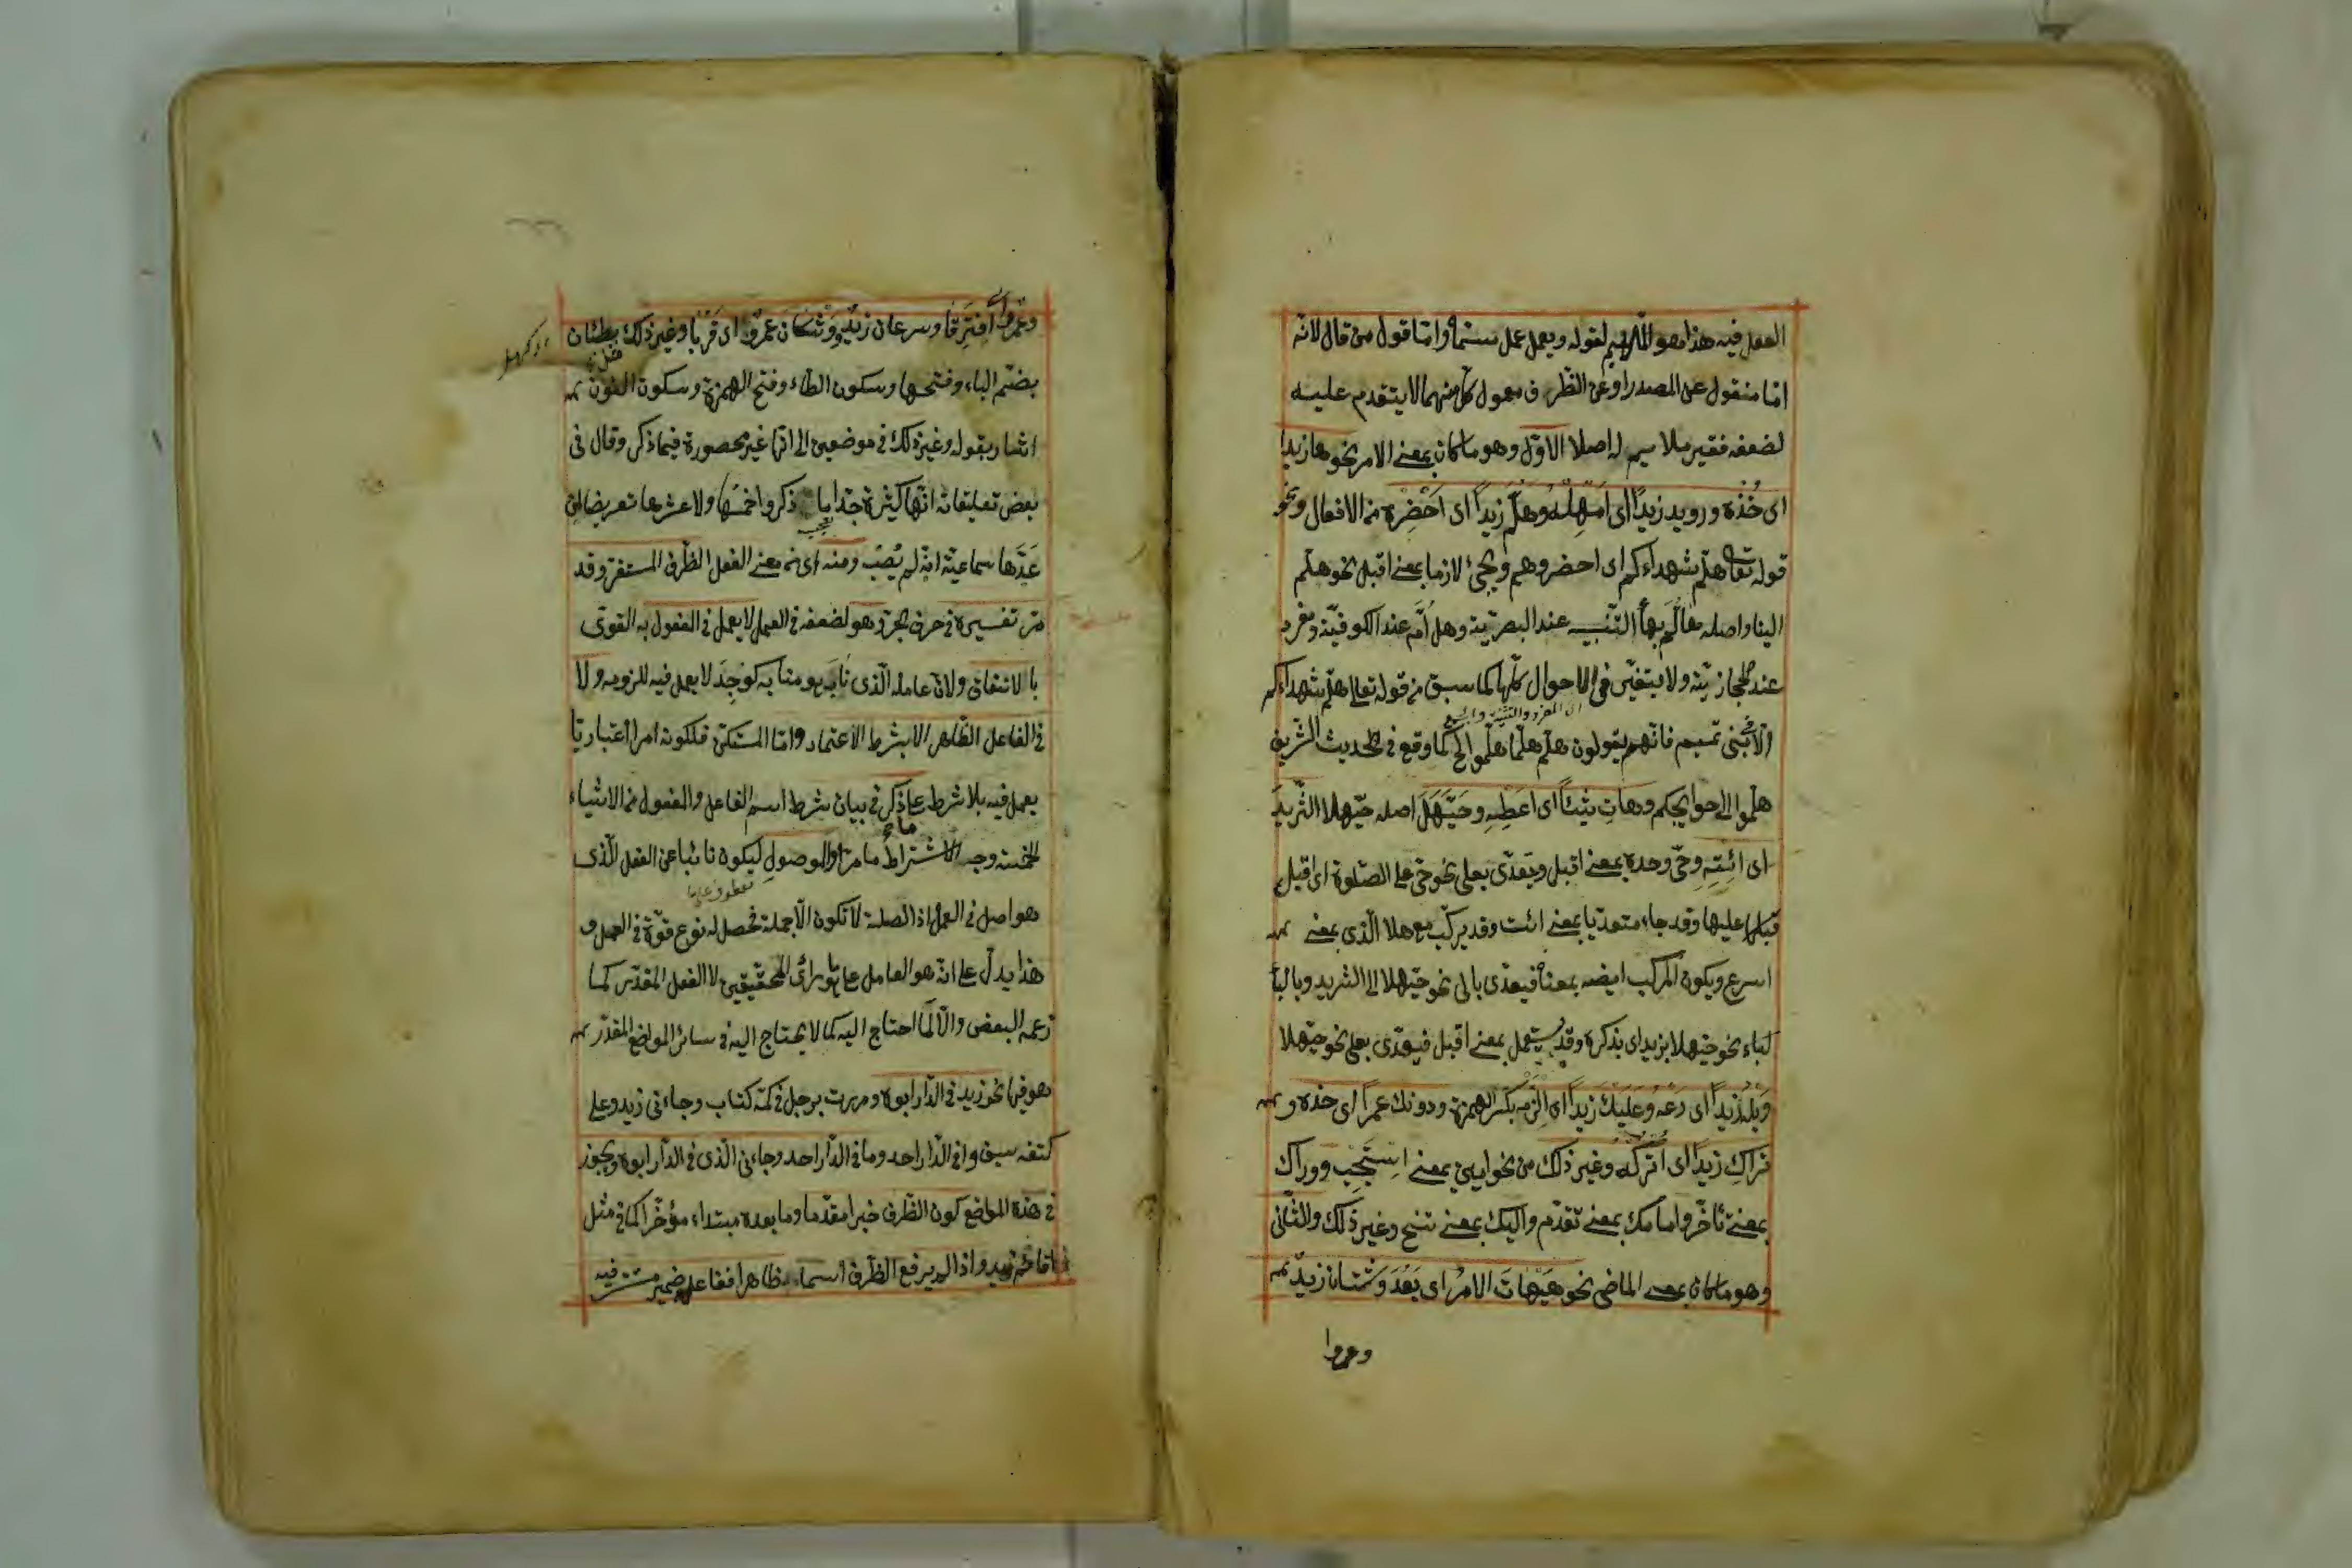 الفعل فيه هذا هو الملايم لقوله ويعمل عمل مسماه واما قول من قال لانه
اما منقول عن المصدر او عن الظرف ومعمول كل منهما لا يتقدم عليه
لضعفه فغير ملايم له اصلا الاول وهو ما كان بمعنى الامر نحو ها زيدا
اى خُذْه ورويد زيداً اى اَمْهِلْهُ وهَلُمَّ زيداً اى اَحْضِرْه من الافعال ونحو
قوله تعالى هلم شهداءكم اى احضروهم ويجئ لازما بمعنى اقبل نحو هلم
الينا واصله هالُمّ بهاء التنبيه عند البصريّة وهل اُمَّ عند الكوفيّة ومفرد
عند الحجازيّة ولا يتغيّر فى الاحوال كلّها كما سبق من قوله تعالى هلمّ شهداءكم
اى المفرد والتثنية والجمع
الا بنى تميم فانهم يقولون هلمّ هلمّا هلمّوا الخ كما وقع فى الحديث الشريف
هلمّوا الى حوايجكم وهاتِ شيئاً اى اعطِهِ وحَيَّهَلَ اصله حيّهلا الثريدَ
اى ائتِهِ وحىّ وحده بمعنى اقبل ويتعدّى بعلى نحو حىّ على الصلوة اى اقبل
عليها وقد جاء متعديا بمعنى ائت وقد يركّب مع هلا الّذى بمعنى
اسرع ويكون المركب ايضه بمعناه فيعدّى بالى نحو حيّهلا الى الثريد وبالبا
كباء نحو حيّهلا بزيد اى بذكره وقد يستعمل بمعنى اقبل فيعدّى بعلى نحو حيّهلا
وَبَلْهَ زيداً اى دَعْه وعَلَيْكَ زيداً اى اِلْزَمْه بكسر الهمزة ودونك عمراً اى خذه و
تراكِ زيداً اى اتركْه وغير ذلك من نحو امين بمعنى اِسْتَجِبْ ووراك
بمعنى تأخّر وامامك بمعنى تقدّم واليك بمعنى تنحّ وغير ذلك والثانى
وهو ما كان بمعنى الماضى نحو هَيْهاتَ الامرُ اى بَعُدَ وشتّان زيدٌ
وعمروا
وعمروٌ اى اِفْتَرَقا وسرعان زيدٌ ووشكان عمروٌ اى قَرُبا وغير ذلك كبطئان
بضم الباء وفتحها وسكون الطاء وفتح الهمزة وسكون النون
اشار بقوله وغير ذلك فى موضعين الى انها غير محصورة فيما ذكر وقال فى
بعض تعليقاته انّها كثيرة جدّا ما ذكروا خُمسَها ولا عشرها تعريضا لمن
عَدَّها سماعيّة انه لم يُصِبْ ومنه اى من معنى الفعل الظرف المستقر وقد
مرّ تفسيره فى حرف الجر وهو لضعفه فى العمل لا يعمل فى المفعول به القوىّ
بالاتفاق ولانّ عامله الّذى نابَ هو منابه لوجِدَ لا يعمل فيه للزومه ولا
فى الفاعل الظاهر الا بشرط الاعتماد واما المستكن فلكونه امرا اعتباريّا
يعمل فيه بلا شرط على ما ذكر فى بيان شرط اسم الفاعل والمفعول من الاشياء
الخمسة وجه الاشتراط ما مرّ او الموصولِ ليكون نائبا عن الفعل الّذى
معطوف على ما
هو اصل فى العمل اذ الصلة لا تكون الّا جملة فحصل له نوع قوّة فى العمل و
هذا يدلّ على انّه هو العامل على ما هو رأى المحقّقين لا الفعل المقدّر كما
زعمه البعض والّا لَما احتاج اليه كما لا يحتاج اليه فى سائر المواضع المقدّر
هو فيها نحو زيد فى الدّار ابوه ومررت برجل فى كمّه كتاب وجاءنى زيد وعلى
كتفه سيف وافى الدّار احد وما فى الدّار احد وجاءنى الّذى فى الدّار ابوه ويجوز
فى هذه المواضع كون الظرف خبرا مقدّما وما بعده مبتداء مؤخّرا كما فى مثل
اقائم زيد واذا لم يرفع الظرف اسما ظاهرا ففاعله ضمير مستتر فيه